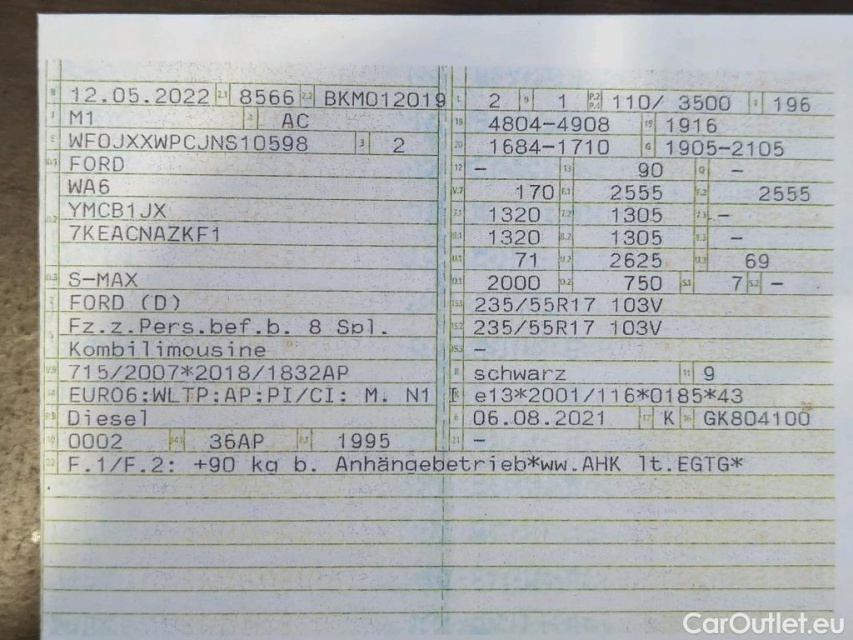 B 12.05.2022 2.1 8566 2.2 BKM012019
J M1 4 AC
E WF0JXXWPCJNS10598 3 2
D.1 FORD
WA6
D.2 YMCB1JX
7KEACNAZKF1
D.3 S-MAX
2 FORD (D)
5 Fz.z.Pers.bef.b. 8 Spl.
Kombilimousine
V.9 715/2007*2018/1832AP
14 EURO6:WLTP:AP:PI/CI: M. N1
P.3 Diesel
10 0002 14.1 36AP P.1 1995
22 F.1/F.2: +90 kg b. Anhängebetrieb*ww.AHK lt.EGTG*
L 2 9 1 P.2 P.4 110/ 3500 T 196
18 4804-4908 19 1916
20 1684-1710 G 1905-2105
12 - 13 90 Q -
V.7 170 F.1 2555 F.2 2555
7.1 1320 7.2 1305 7.3 -
8.1 1320 8.2 1305 8.3 -
U.1 71 U.2 2625 U.3 69
O.1 2000 O.2 750 S.1 7 S.2 -
15.1 235/55R17 103V
15.2 235/55R17 103V
15.3 -
R schwarz 11 9
K e13*2001/116*0185*43
6 06.08.2021 17 K 16 GK804100
21 -
CarOutlet.eu